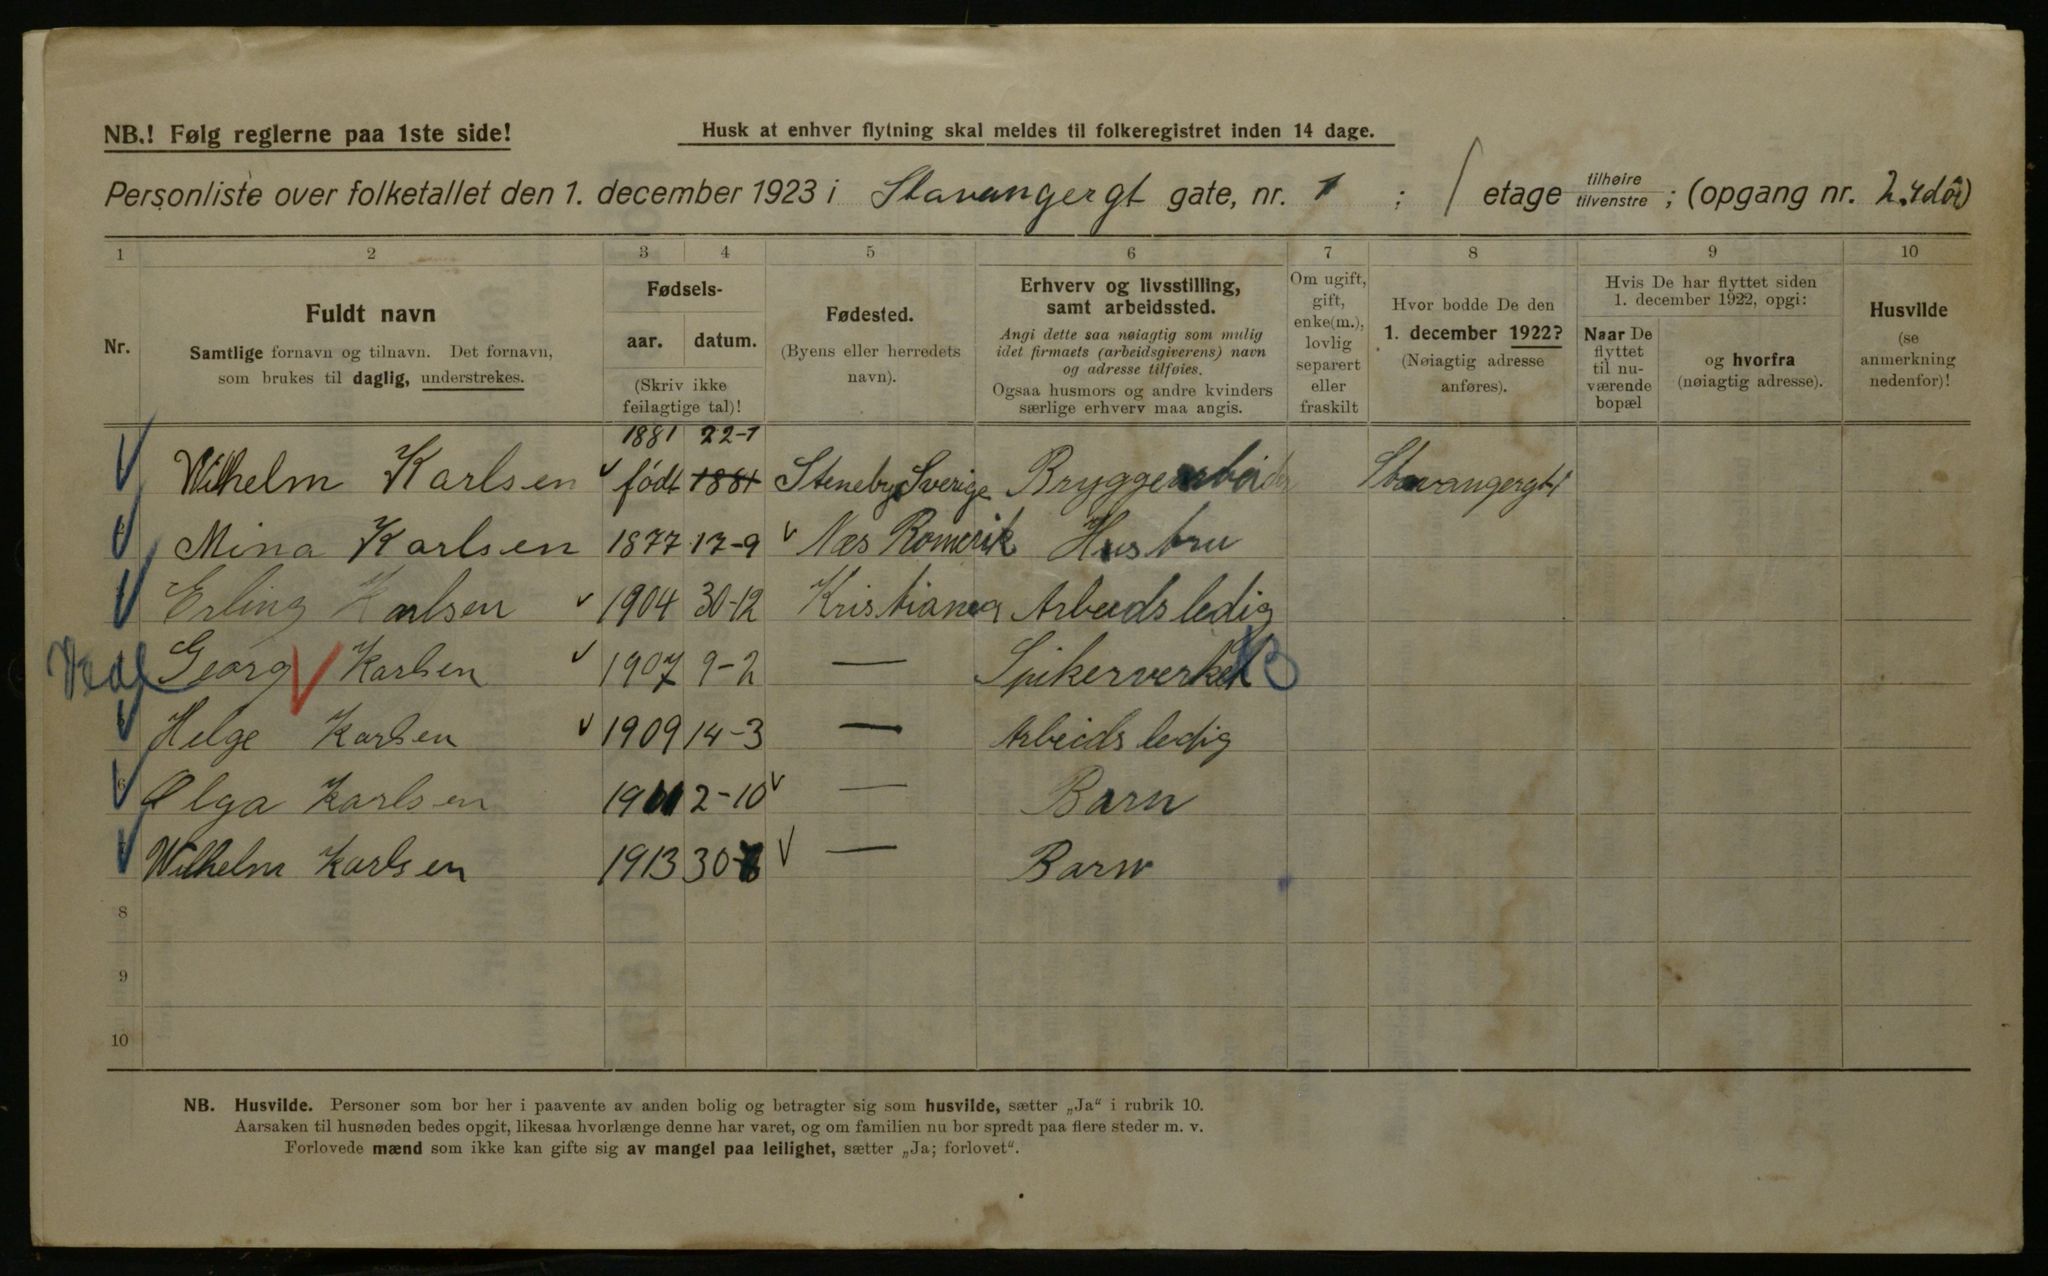 NB.! Følg reglerne paa 1ste side!
Husk at enhver flytning skal meldes til folkeregistret inden 14 dage.
Personliste over folketallet den 1. december 1923 i Stavangergt gate, nr. 1 ; 1 etage tilhøire tilvenstre ; (opgang nr. 2.
1 2 3 4 5 6 7 8 9 10
Nr.
Fuldt navn
Samtlige fornavn og tilnavn. Det fornavn,
som brukes til daglig, understrekes.
Fødsels-
aar. datum.
(Skriv ikke
feilagtige tal)!
Fødested.
(Byens eller herredets
navn).
Erhverv og livsstilling,
samt arbeidssted.
Angi dette saa nøiagtig som mulig
idet firmaets (arbeidsgiverens) navn
og adresse tilføies.
Ogsaa husmors og andre kvinders
særlige erhverv maa angis.
Om ugift,
gift,
enke(m.),
lovlig
separert
eller
fraskilt
Hvor bodde De den
1. december 1922?
(Nøiagtig adresse
anføres).
Hvis De har flyttet siden
1. december 1922, opgi:
Naar De
flyttet
til nu-
værende
bopæl
og hvorfra
(nøiagtig adresse).
Husvilde
(se
anmerkning
nedenfor)!
1881 22-1
Wilhelm Karlsen født 1881 Steneby Sverige Bryggearbeider Stavangergt 1
Mina Karlsen 1877 17-9 Næs Romerik Husbru
Erling Karlsen 1904 30-12 Kristiania Arbeidsledig
Georg Karlsen 1907 9-2 — Spikerverket
Helge Karlsen 1909 14-3 — Arbeidsledig
6 Olga Karlsen 1911 2-10 — Barn
Wilhelm Karlsen 1913 30- — Barn
8
9
10
NB. Husvilde. Personer som bor her i paavente av anden bolig og betragter sig som husvilde, sætter „Ja" i rubrik 10.
Aarsaken til husnøden bedes opgit, likesaa hvorlænge denne har varet, og om familien nu bor spredt paa flere steder m. v.
Forlovede mænd som ikke kan gifte sig av mangel paa leilighet, sætter „Ja; forlovet".